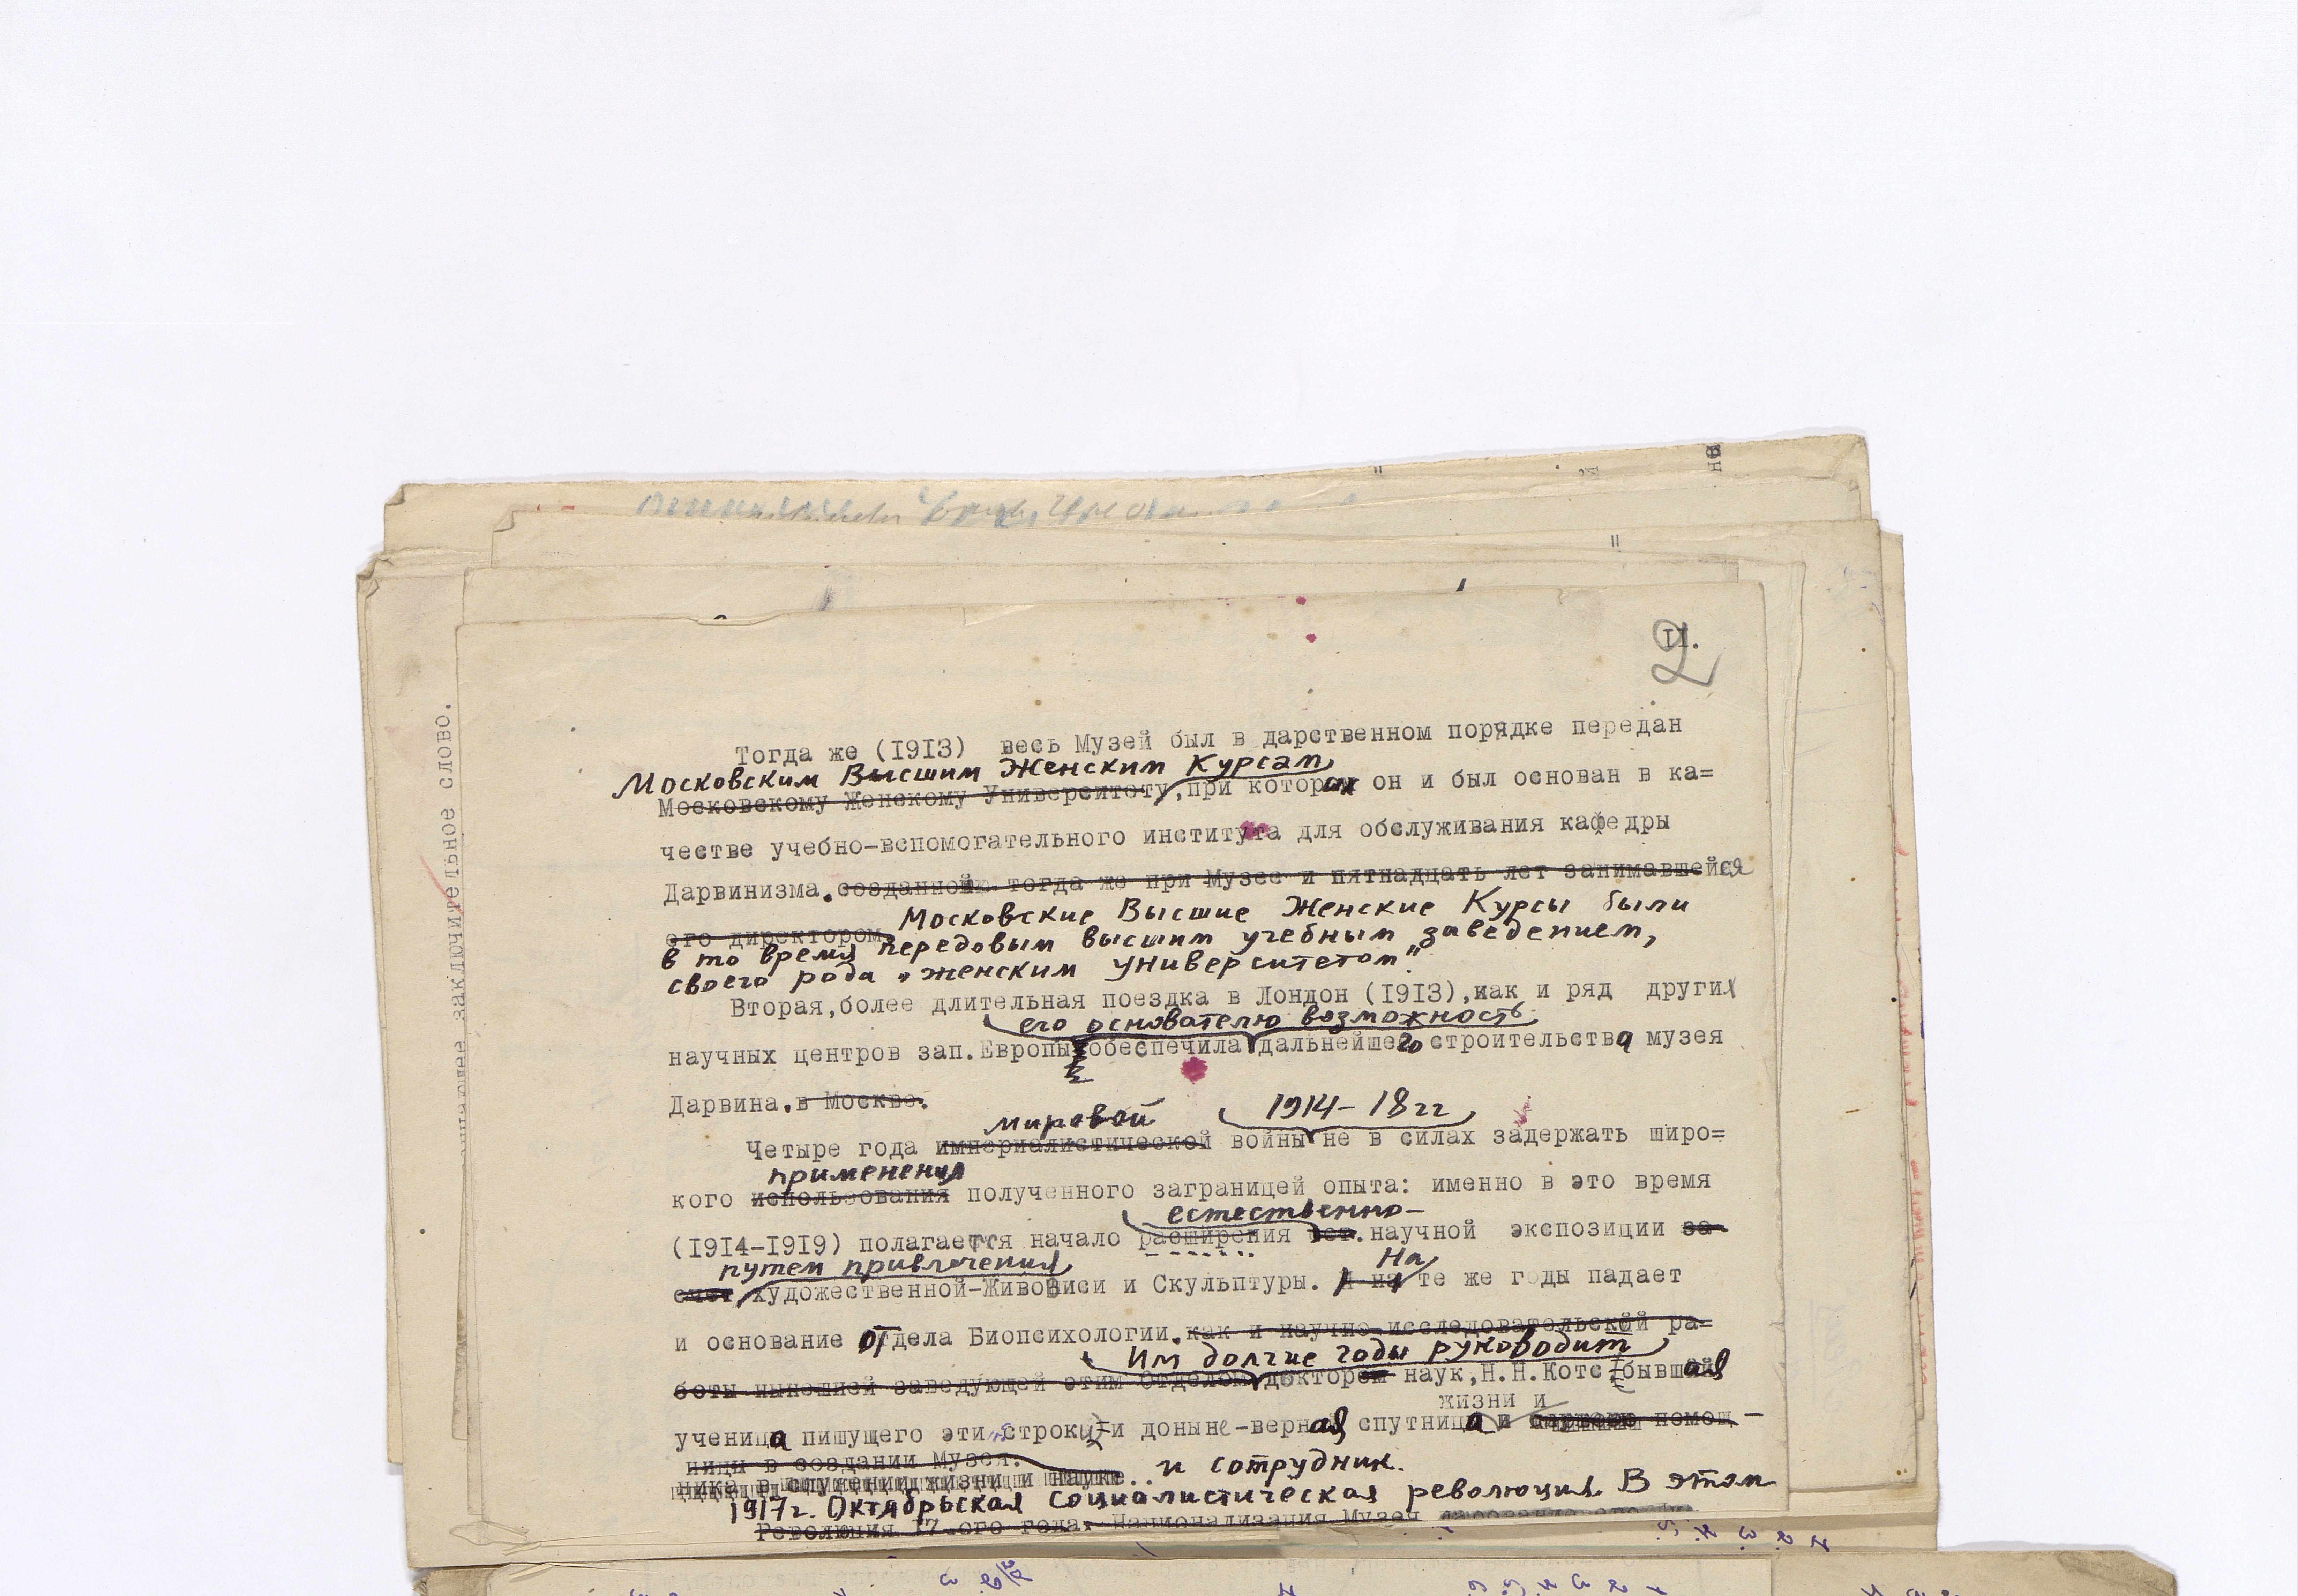 II.
2
Тогда же (1913) весь Музей был в дарственном порядке передан
Московским Высшим Женским Курсам,
Московскому Женскому Университету, при которых он и был основан в ка=
честве учебно-вспомогательного института для обслуживания кафедры
Дарвинизма. созданной тогда же при Музее и пятнадцать лет занимавшейся
его директором.
Московские Высшие Женские Курсы были
в то время передовым высшим учебным заведением,
своего рода „женским университетом".
Вторая, более длительная поездка в Лондон (1913), как и ряд других
его основателю возможность
научных центров зап. Европы обеспечила дальнейшего строительства музея
Дарвина. в Москве.
мировой 1914-18 гг
Четыре года империалистической войны не в силах задержать широ=
применения
кого использования полученного заграницей опыта: именно в это время
естественно-
(1914-1919) полагается начало расширения ест. научной экспозиции за-
путем привлечения На
счет, художественной-Живописи и Скульптуры. И на те же годы падает
и основание Отдела Биопсихологии. как и научно-исследовательской ра=
Им долгие годы руководит
боты нынешней заведующей этим Отделом, доктором наук, Н.Н. Котс, бывшая
жизни и
ученица пишущего эти строки и доныне-верная спутница и помощ-
ницы в создании Музея.
ника в служении жизни и науке.. и сотрудник.
1917г. Октябрьская социалистическая революция. В этом
Революция 17-ого года. Национализация Музея
заключительное слово.